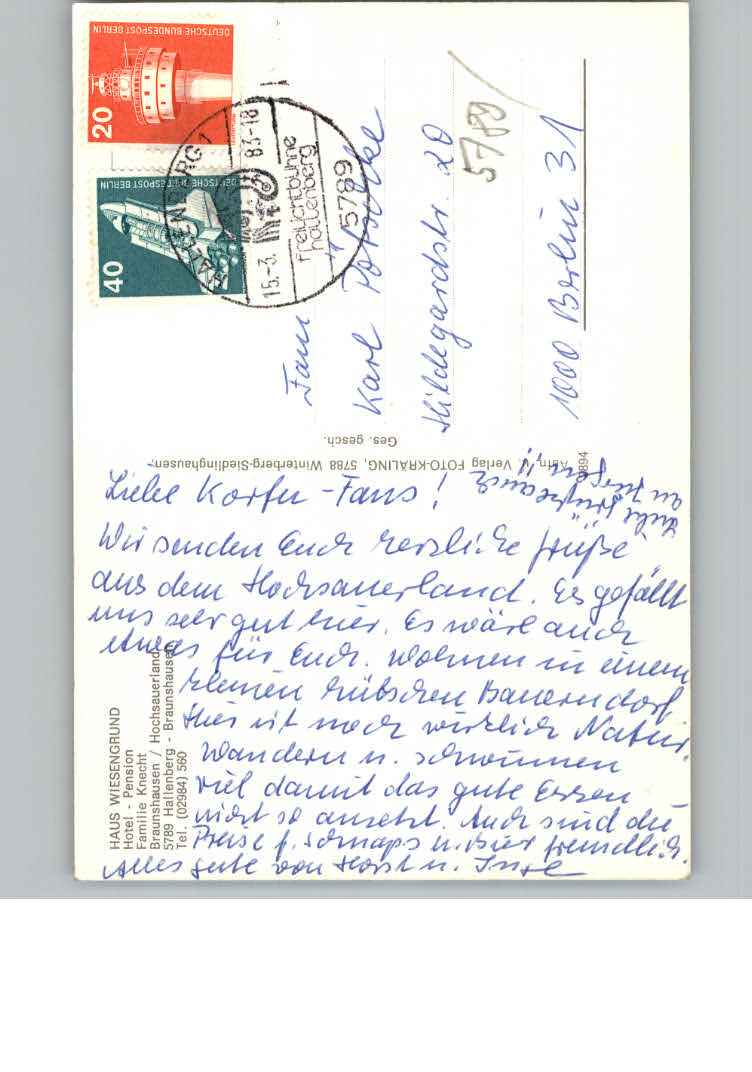 Liebe Korfu-Fans!
Wir senden Euch herzliche Grüße
aus dem Hochsauerland. Es gefällt
uns sehr gut hier. Es wäre auch
etwas für Euch. Wohnen in einem
kleinen hübschen Bauerndorf
Hier ist noch wirklich Natur.
Wandern u. schwimmen
viel damit das gute Essen
nicht so ansetzt. Auch sind die
Preise f. Schnaps u. Bier freundlich.
Alles Gute von Horst u. Inge
HAUS WIESENGRUND
Hotel - Pension
Familie Knecht
Braunshausen / Hochsauerland
5789 Hallenberg - Braunshausen
Tel. (02984) 560
Aufn. u. Verlag FOTO-KRÄLING, 5788 Winterberg-Siedlinghausen
Ges. gesch.
894
Fam.
Karl Pötschke
Hildegardstr. 20
1000 Berlin 31
5789
DEUTSCHE BUNDESPOST BERLIN
20
DEUTSCHE BUNDESPOST BERLIN
40
HALLENBERG 1
15.-3. 83-18
Freilichtbühne
hallenberg
5789